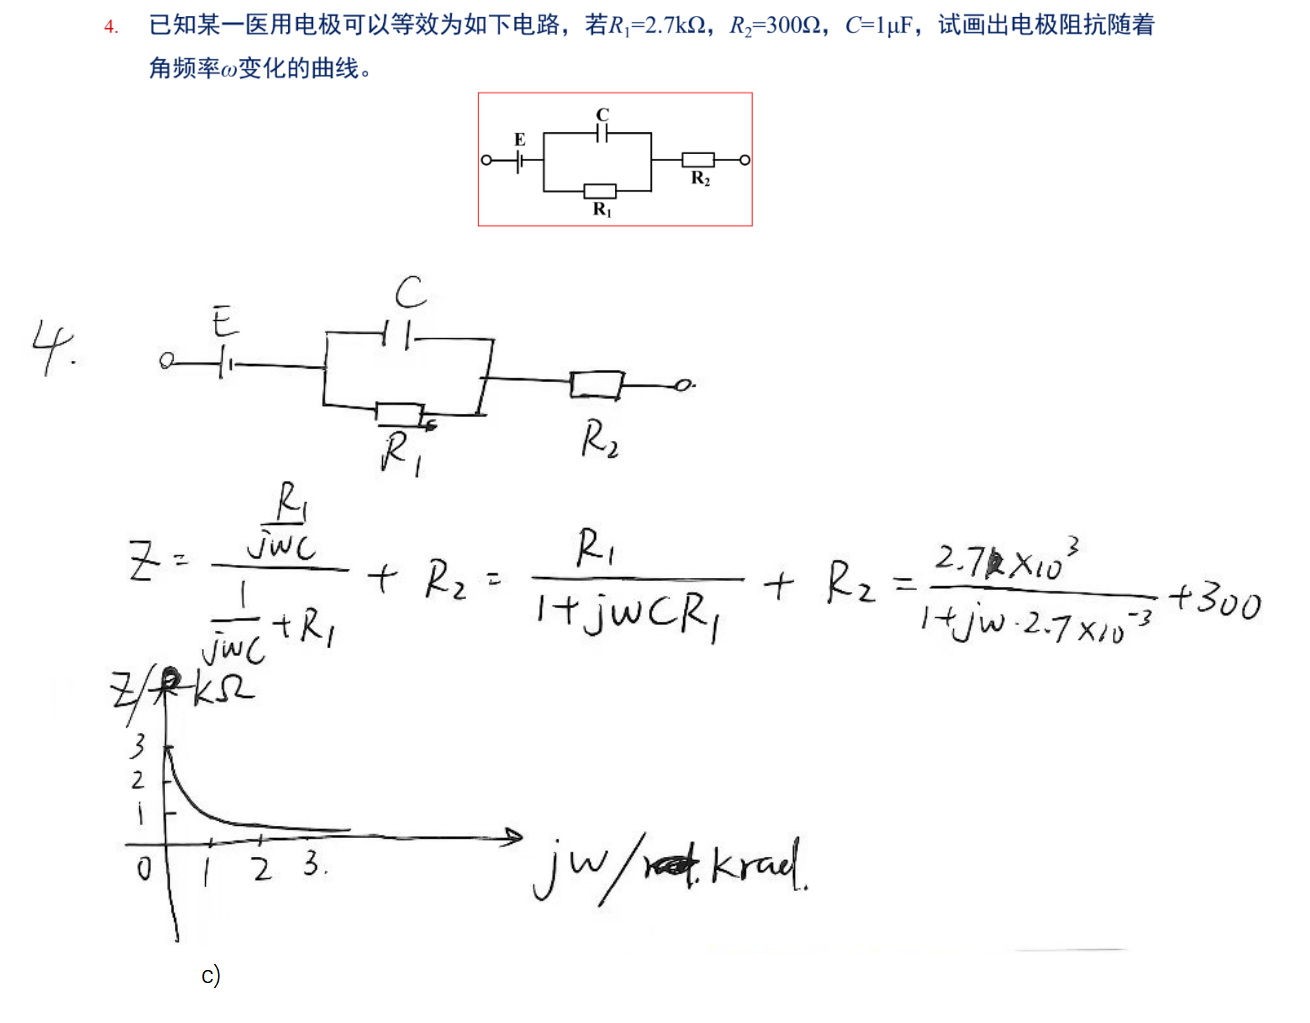 4. 已知某一医用电极可以等效为如下电路，若R₁=2.7kΩ，R₂=300Ω，C=1μF，试画出电极阻抗随着
角频率ω变化的曲线。
C
E
R₂
R₁
C
E
4.
R₁
R₂
Z = (R₁/jwC)/(1/jwC + R₁) + R₂ = R₁/(1+jwCR₁) + R₂ = 2.7×10³/(1+jw·2.7×10⁻³) +300
Z/kΩ
3
2
1
0 1 2 3.
jw/krad.
c)